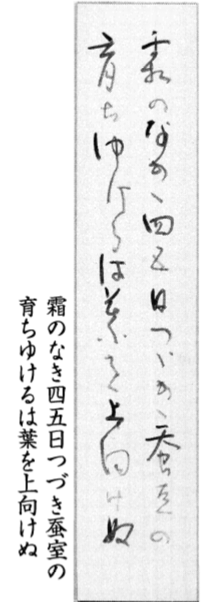 霜のなき四五日つゞき蚕豆の
育ちゆけるは葉を上向けぬ
霜のなき四五日つづき蚕豆の
育ちゆけるは葉を上向けぬ